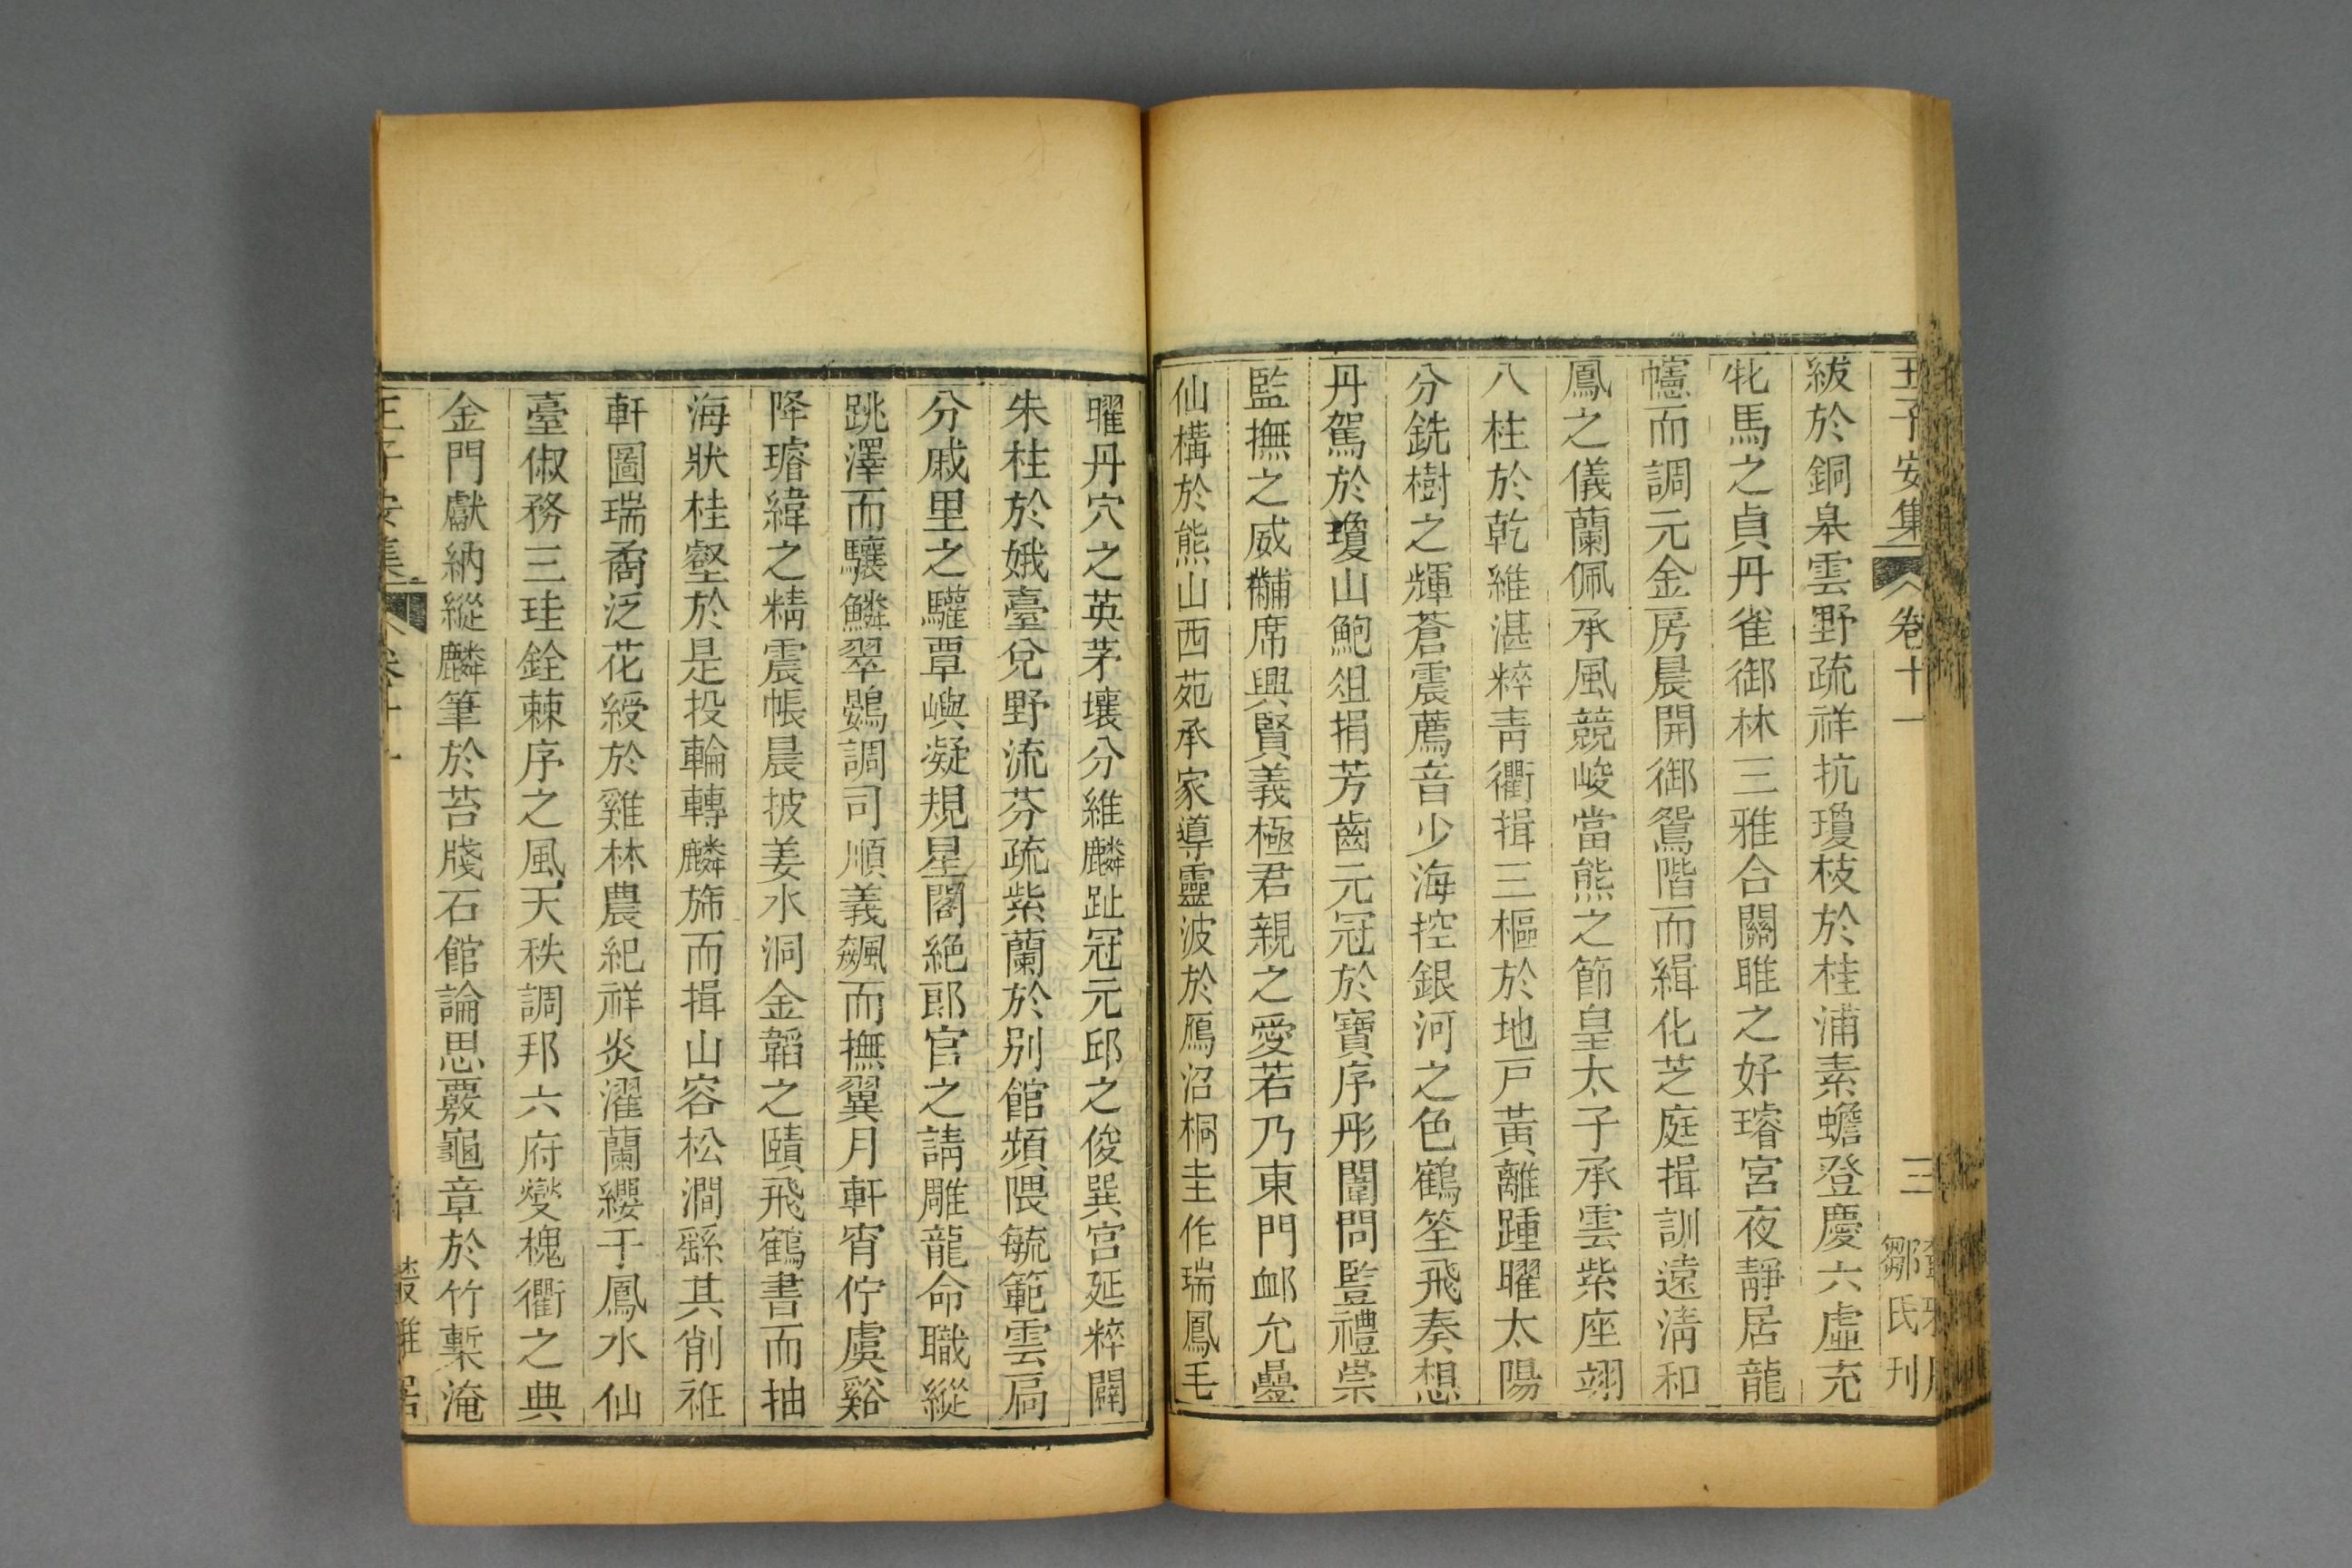 王子安集 卷十一 三 鄒氏刊
紱於銅臯雲野疏祥抗瓊枝於桂浦素蟾登慶六虛充
牝馬之貞丹雀御林三雅合關雎之好璿宮夜靜居龍
幰而調元金房晨開御鴛階而緝化芝庭揖訓遠淸和
鳳之儀蘭佩承風競峻當熊之節皇太子承雲紫座翊
八柱於乾維湛粹靑衢揖三樞於地戸黃離踵曜太陽
分銑樹之輝蒼震薦音少海控銀河之色鶴筌飛奏想
丹駕於瓊山鮑俎捐芳齒元冠於寶序彤闈問豎禮崇
監撫之威黼席興賢義極君親之愛若乃東門卹允疊
仙構於熊山西苑承家導靈波於鴈沼桐圭作瑞鳳毛
曜丹穴之英茅壤分維麟趾冠元邱之俊巽宮延粹闢
朱柱於娥臺兌野流芬疏紫蘭於別館頻隈毓範雲扃
分戚里之驩覃嶼凝規星閣絶郎官之請雕龍命職縱
跳澤而驤鱗翠鷃調司順義飆而撫翼月軒宵佇虞谿
降璿緯之精震帳晨披姜水洞金韜之賾飛鶴書而抽
海狀桂壑於是投輪轉麟斾而揖山容松澗繇其削袵
軒圖瑞矞泛花綬於雞林農紀祥炎濯蘭纓于鳳水仙
臺俶務三珪銓棘序之風天秩調邦六府燮槐衢之典
金門獻納縱麟筆於苔牋石館論思覈龜章於竹槧淹
王子安集 卷十一 叢雅居